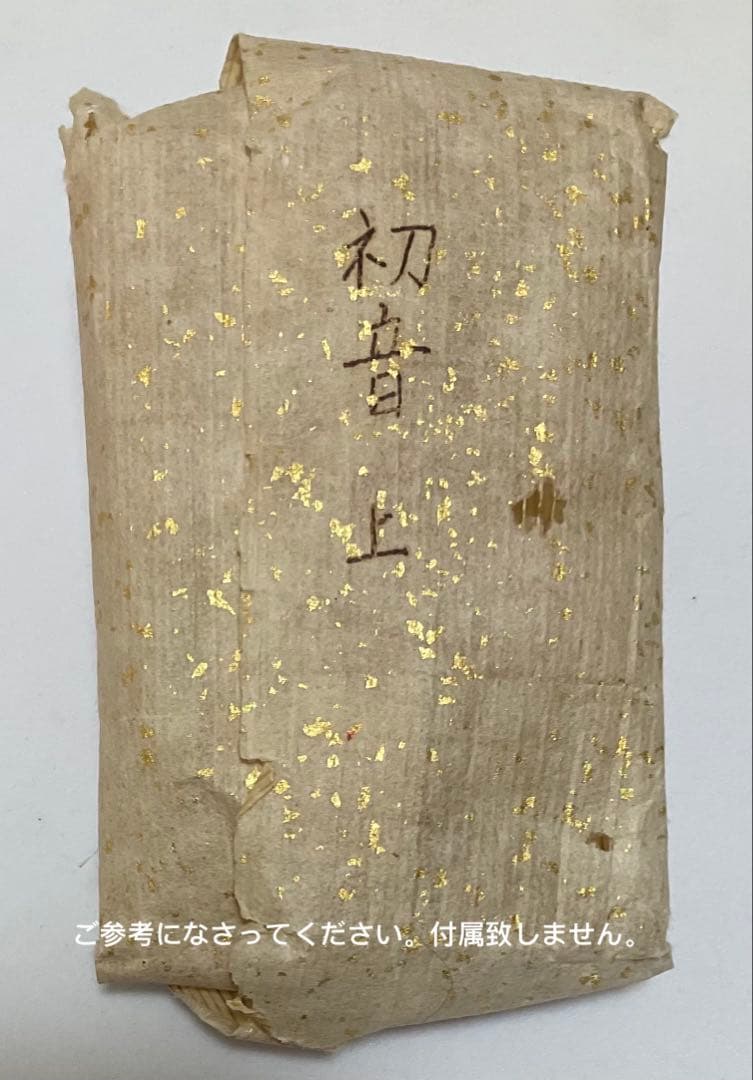 初音 上
ご参考になさってください。付属致しません。